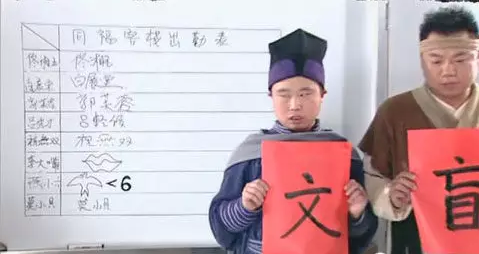 同福客栈出勤表
佟湘玉 佟湘玉
白展堂
郭芙蓉
吕秀才 吕轻侯
祝無双 祝無双
李大嘴
燕小六 <6
莫小贝 莫小贝
文
盲